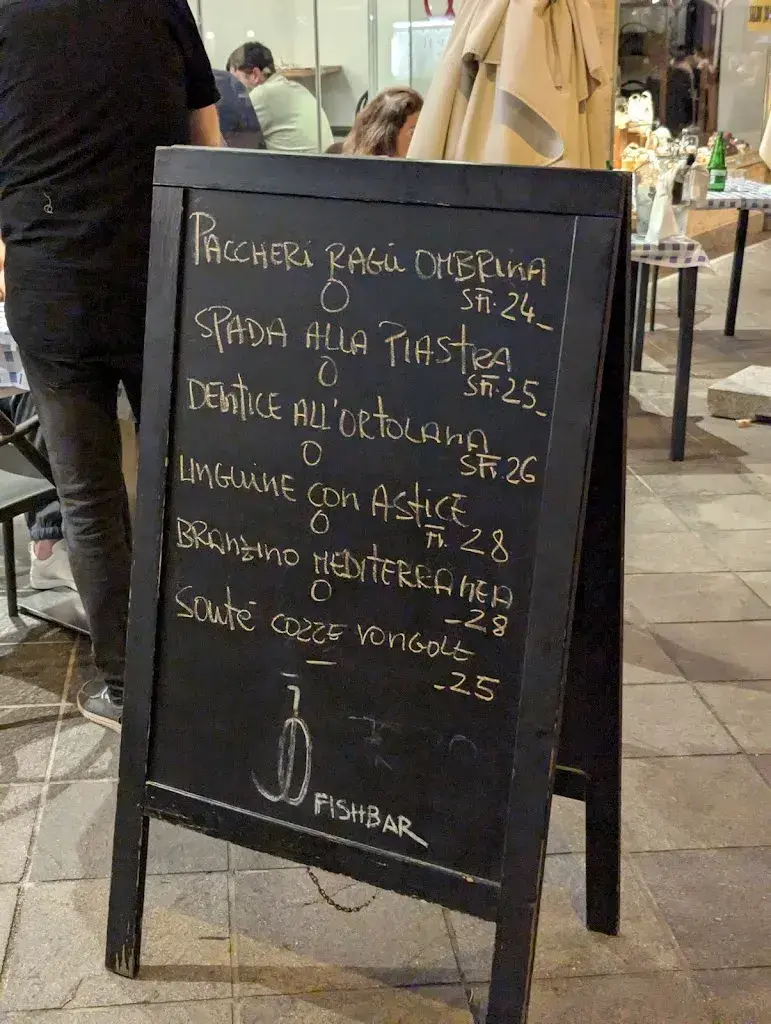 PACCHERI RAGÙ OMBRINA
Sfr. 24.-
SPADA ALLA PIASTRA
Sfr. 25.-
DENTICE ALL'ORTOLANA
Sfr. 26
LINGUINE CON ASTICE
Fr. 28
BRANZINO MEDITERRANEA
-28
SOUTÉ COZZE VONGOLE
-25
FISHBAR